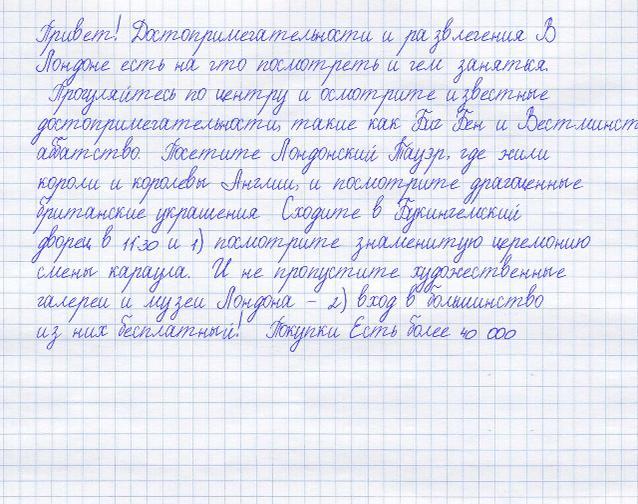 Привет! Достопримечательности и развлечения В
Лондоне есть на что посмотреть и чем заняться.
Прогуляйтесь по центру и осмотрите известные
достопримечательности, такие как Биг Бен и Вестминст
аббатство. Посетите Лондонский Тауэр, где жили
короли и королевы Англии, и посмотрите драгоценные
британские украшения Сходите в Букингемский
дворец в 11:30 и 1) посмотрите знаменитую церемонию
смены караула. И не пропустите художественные
галереи и музеи Лондона - 2) вход в большинство
из них бесплатный! Покупки Есть более 40 000